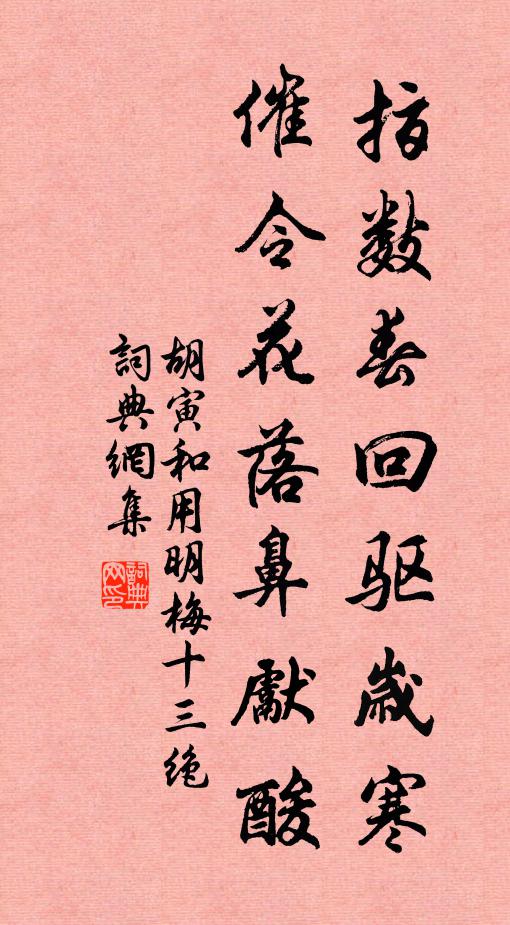 指数春回驱岁寒
催令花落鼻献酸
胡寅和用明梅十三绝
词典網集
詞典網印